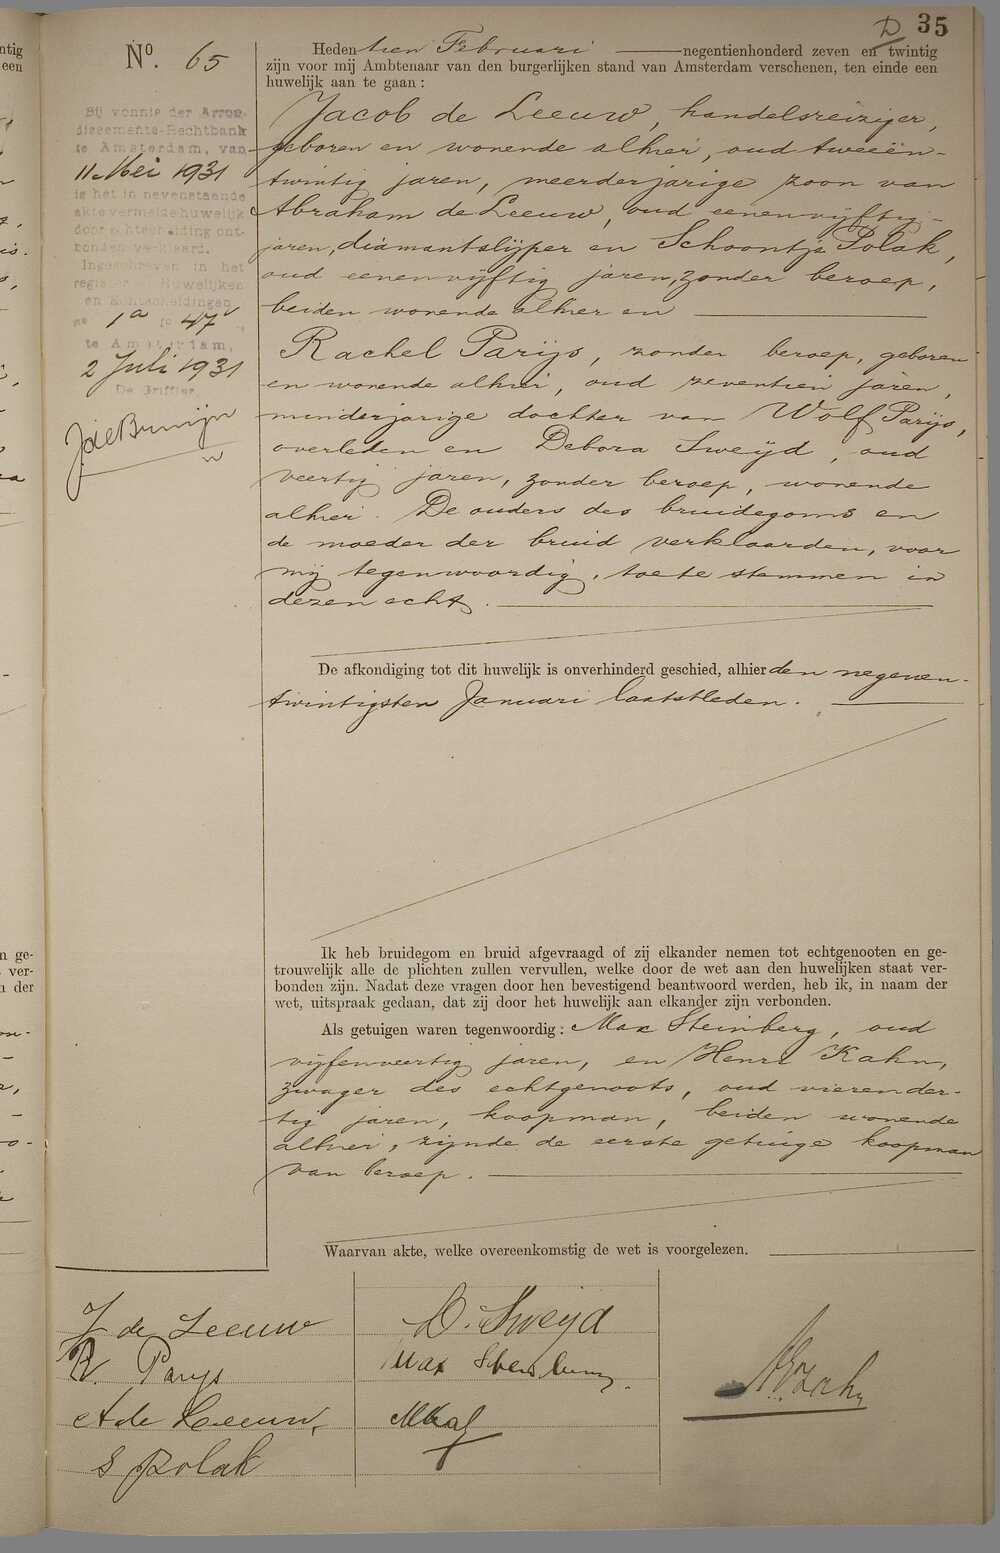 D 35
No. 65
Bij vonnis der Arron-
dissements-Rechtbank
te Amsterdam, van
11 Mei 1931
is het in nevenstaande
akte vermelde huwelijk
door echtscheiding ont-
bonden verklaard.
Ingeschreven in het
register Huwelijken
en Echtscheidingen
1a 47v
te Amsterdam,
2 Juli 1931
De Griffier,
Heden tien Februari negentienhonderd zeven en twintig
zijn voor mij Ambtenaar van den burgerlijken stand van Amsterdam verschenen, ten einde een
huwelijk aan te gaan:
Jacob de Leeuw, handelsreiziger,
geboren en wonende alhier, oud tweeën-
twintig jaren, meerderjarige zoon van
Abraham de Leeuw, oud eenenvijftig
jaren, diamantslijper en Schoontje Polak,
oud eenenvijftig jaren, zonder beroep,
beiden wonende alhier en
Rachel Parijs, zonder beroep, geboren
en wonende alhier, oud zeventien jaren,
minderjarige dochter van Wolf Parijs,
overleden en Debora Sweijd, oud
veertig jaren, zonder beroep, wonende
alhier. De ouders des bruidegoms en
de moeder der bruid verklaarden, voor
mij tegenwoordig, toe te stemmen in
dezen echt.
De afkondiging tot dit huwelijk is onverhinderd geschied, alhier den negenen-
twintigsten Januari laatstleden.
Ik heb bruidegom en bruid afgevraagd of zij elkander nemen tot echtgenooten en ge-
trouwelijk alle de plichten zullen vervullen, welke door de wet aan den huwelijken staat ver-
bonden zijn. Nadat deze vragen door hen bevestigend beantwoord werden, heb ik, in naam der
wet, uitspraak gedaan, dat zij door het huwelijk aan elkander zijn verbonden.
Als getuigen waren tegenwoordig: Max Steinberg, oud
vijfenveertig jaren, en Henri Kahn,
zwager des echtgenoots, oud vierender-
tig jaren, koopman, beiden wonende
alhier, zijnde de eerste getuige koopman
van beroep.
Waarvan akte, welke overeenkomstig de wet is voorgelezen.
J de Leeuw
R. Parijs
A de Leeuw
S Polak
D. Sweijd
Max Steinberg